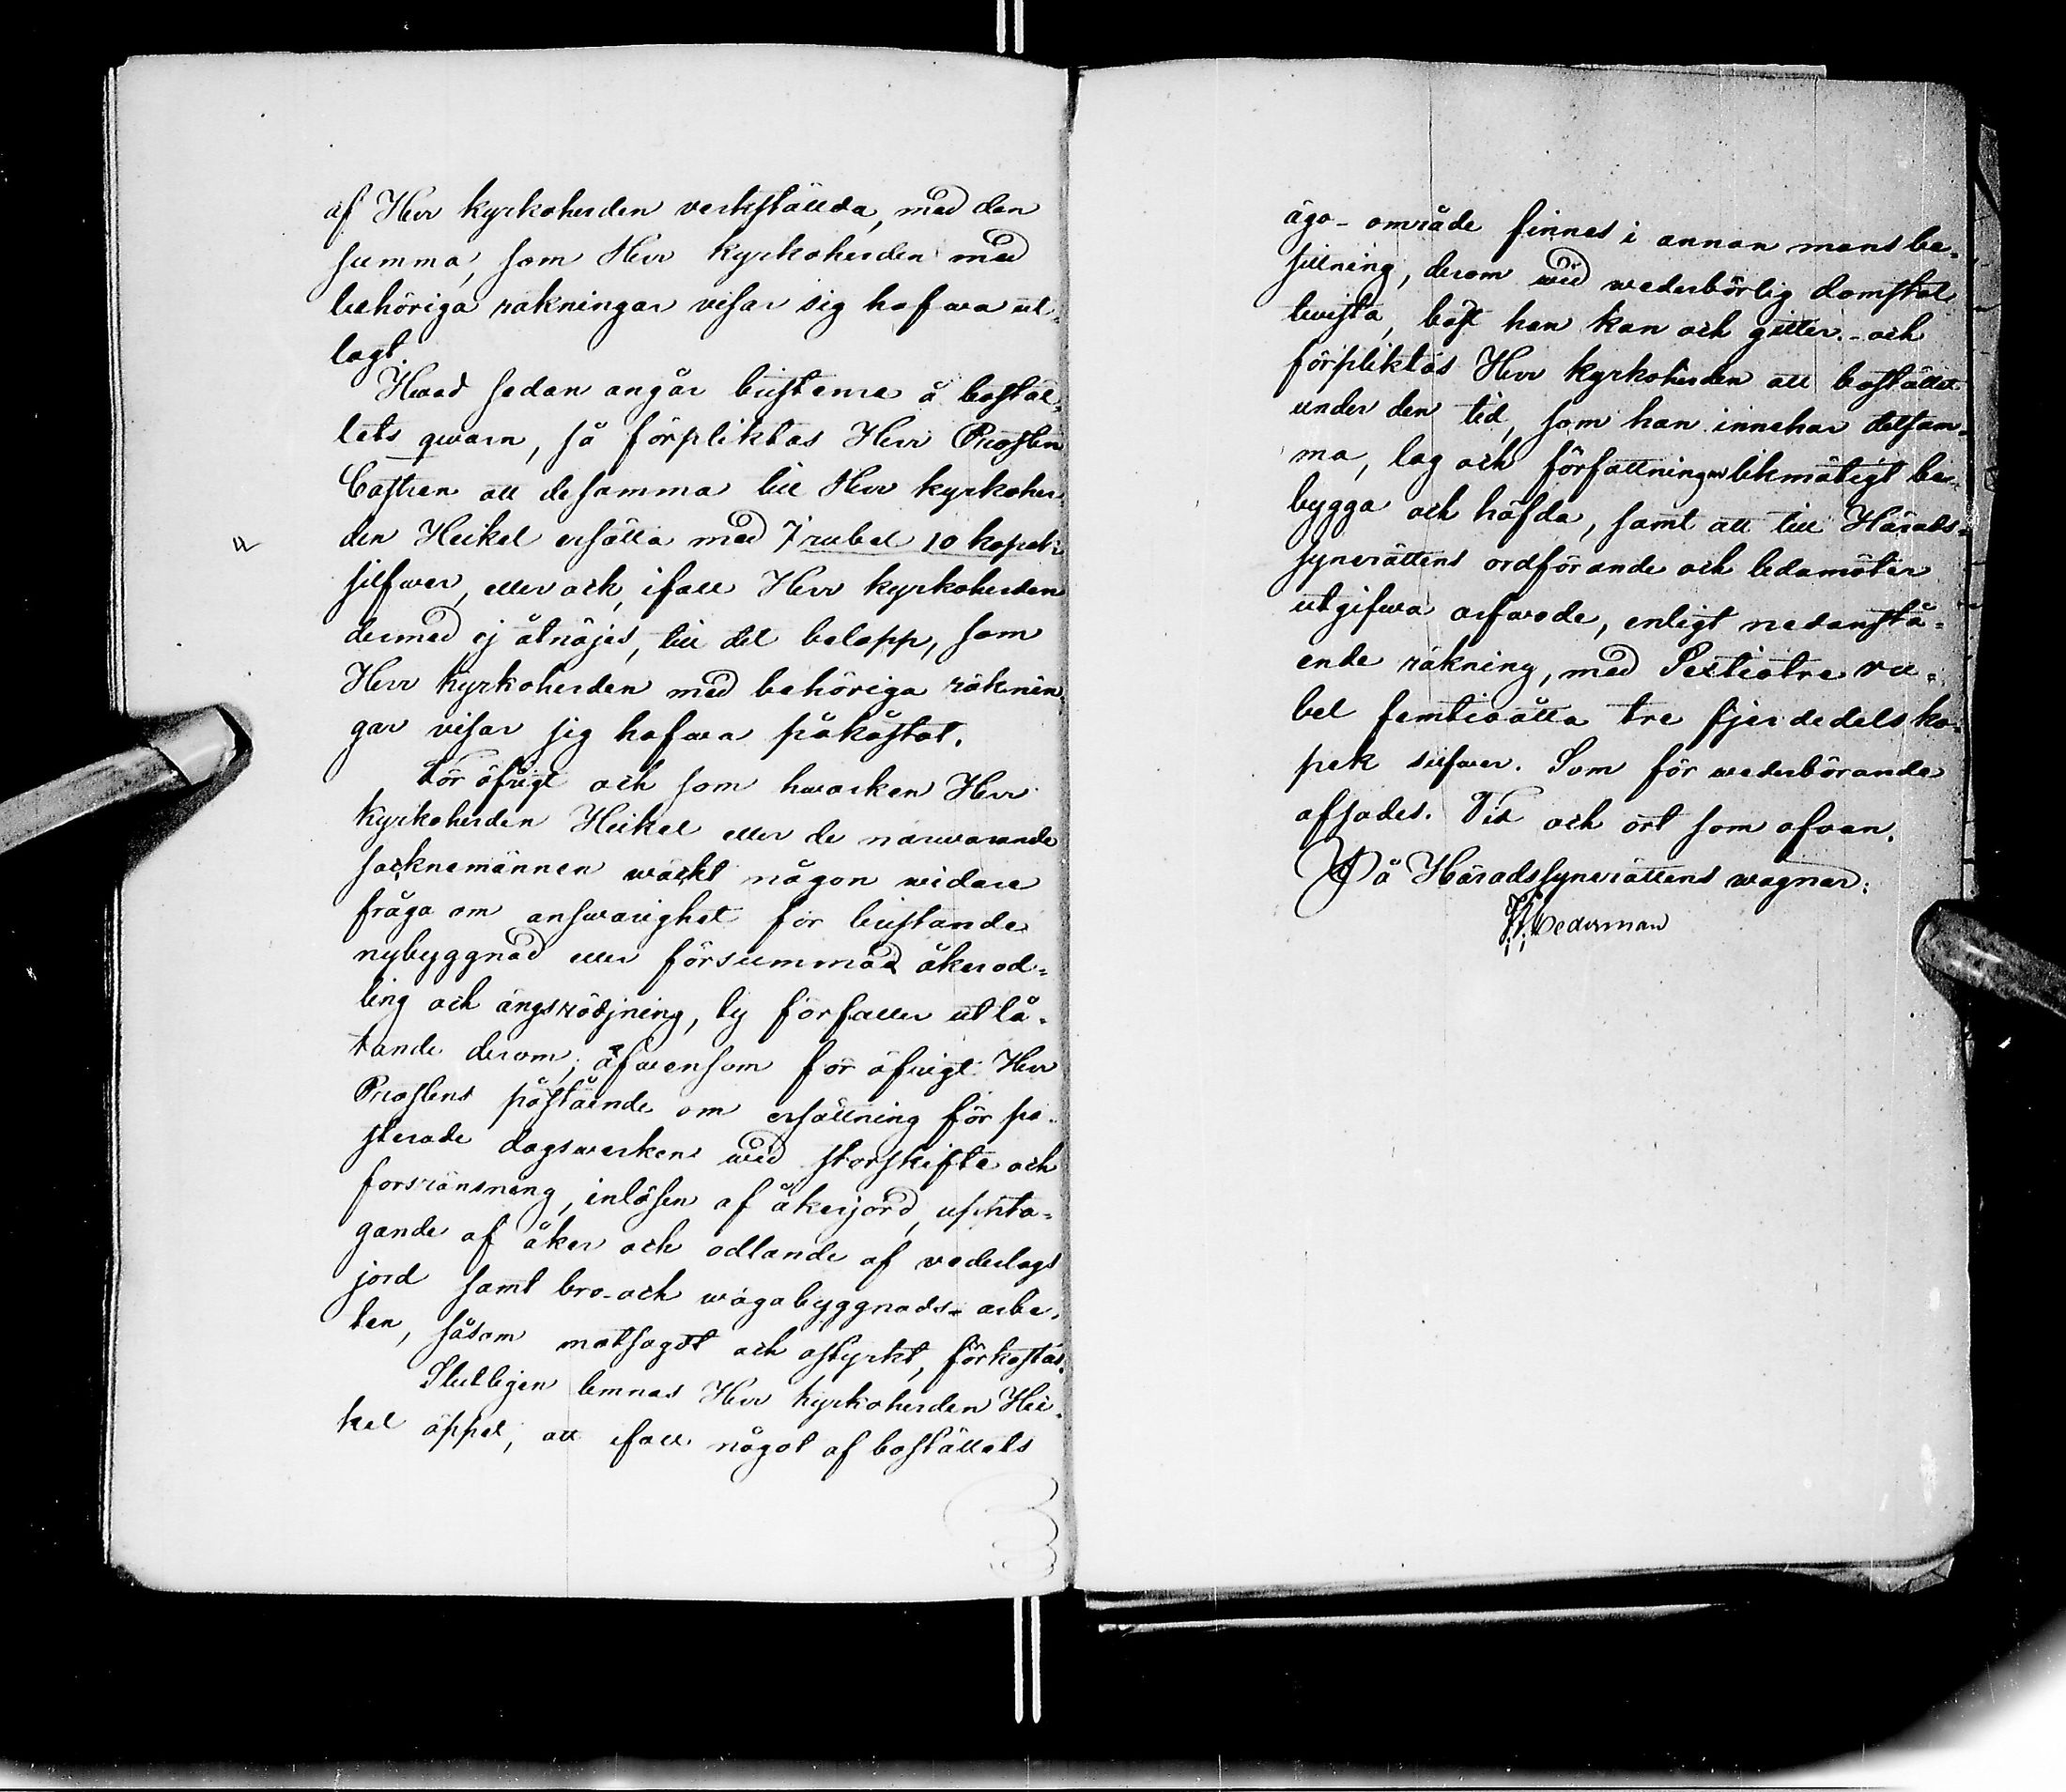 af Herr kyrkoherden verkställda, med den
summa, som Herr kyrkoherden med
behöriga räkningar visar sig hafwa ut-
lagt.
Hwad sedan angår bristerne å bostäl-
lets qwarn, så förpliktas Herr Prosten
Castren att desamma till Herr kyrkoher-
den Heikel ersätta med 7 rubel 10 kopek
silfwer, eller ock, ifall Herr kyrkoherden
dermed ej åtnöjes, till det belopp, som
Herr kyrkoherden med behöriga räknin-
gar visar sig hafwa påkåstat.
För öfrigt och som hwarken Herr
kyrkoherden Heikel eller de närwarande
socknemännen wäckt någon widare
fråga om answarighet för bristande
nybyggnad eller försummad åkerod-
ling och ängsrödjning, ty förfaller utlå-
tande derom; äfwensom för öfrigt Herr
Prostens påstående om ersättning för pre-
sterade dagswerken wid storskifte och
forsränsning, inlösen af åkerjord, uppta-
gande af åker och odlande af vederlags
jord samt bro- och wägabyggnads- arbe-
ten, såsom motsagdt och ostyrkt, förkastas.
Slutligen lemnas Herr kyrkoherden Hei-
kel öppet, att ifall något af boställets
ägo- område finnes i annan mans be-
sittning, derom wid wederbörlig domstol
twista, bäst han kan och gitter. - och
förpliktas Herr kyrkoherden att bostället
under den tid, som han innehar detsam-
ma, lag och författningar likmätigt be-
bygga och häfda, samt att till Härads-
synerättens ordförande och ledamöter
utgifwa arfwode, enligt nedanstå-
ende räkning, med Sextiotre ru-
bel femtioåtta tre fjerdedels ko-
pek silfwer. Som för wederbörande
afsades. Tid och ort som ofvan.
På Häradssynerättens wägnar:
Cederman